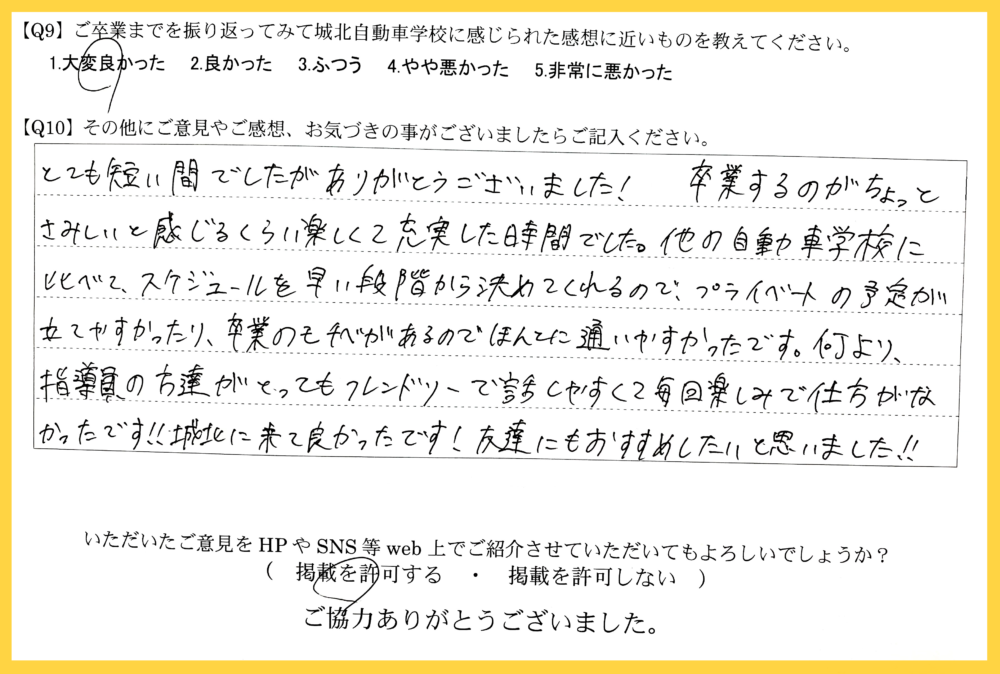 【Q9】ご卒業までを振り返ってみて城北自動車学校に感じられた感想に近いものを教えてください。
1.大変良かった 2.良かった 3.ふつう 4.やや悪かった 5.非常に悪かった
【Q10】その他にご意見やご感想、お気づきの事がございましたらご記入ください。
とても短い間でしたがありがとうございました! 卒業するのがちょっと
さみしいと感じるくらい楽しくて充実した時間でした。他の自動車学校に
比べて、スケジュールを早い段階から決めてくれるので、プライベートの予定が
立てやすかったり、卒業のモチベがあるのでほんとに通いやすかったです。何より、
指導員の方達がとってもフレンドリーで話しやすくて毎回楽しみで仕方がな
かったです!!城北に来て良かったです!友達にもおすすめしたいと思いました!!
いただいたご意見をHPやSNS等web上でご紹介させていただいてもよろしいでしょうか?
( 掲載を許可する ・ 掲載を許可しない )
ご協力ありがとうございました。